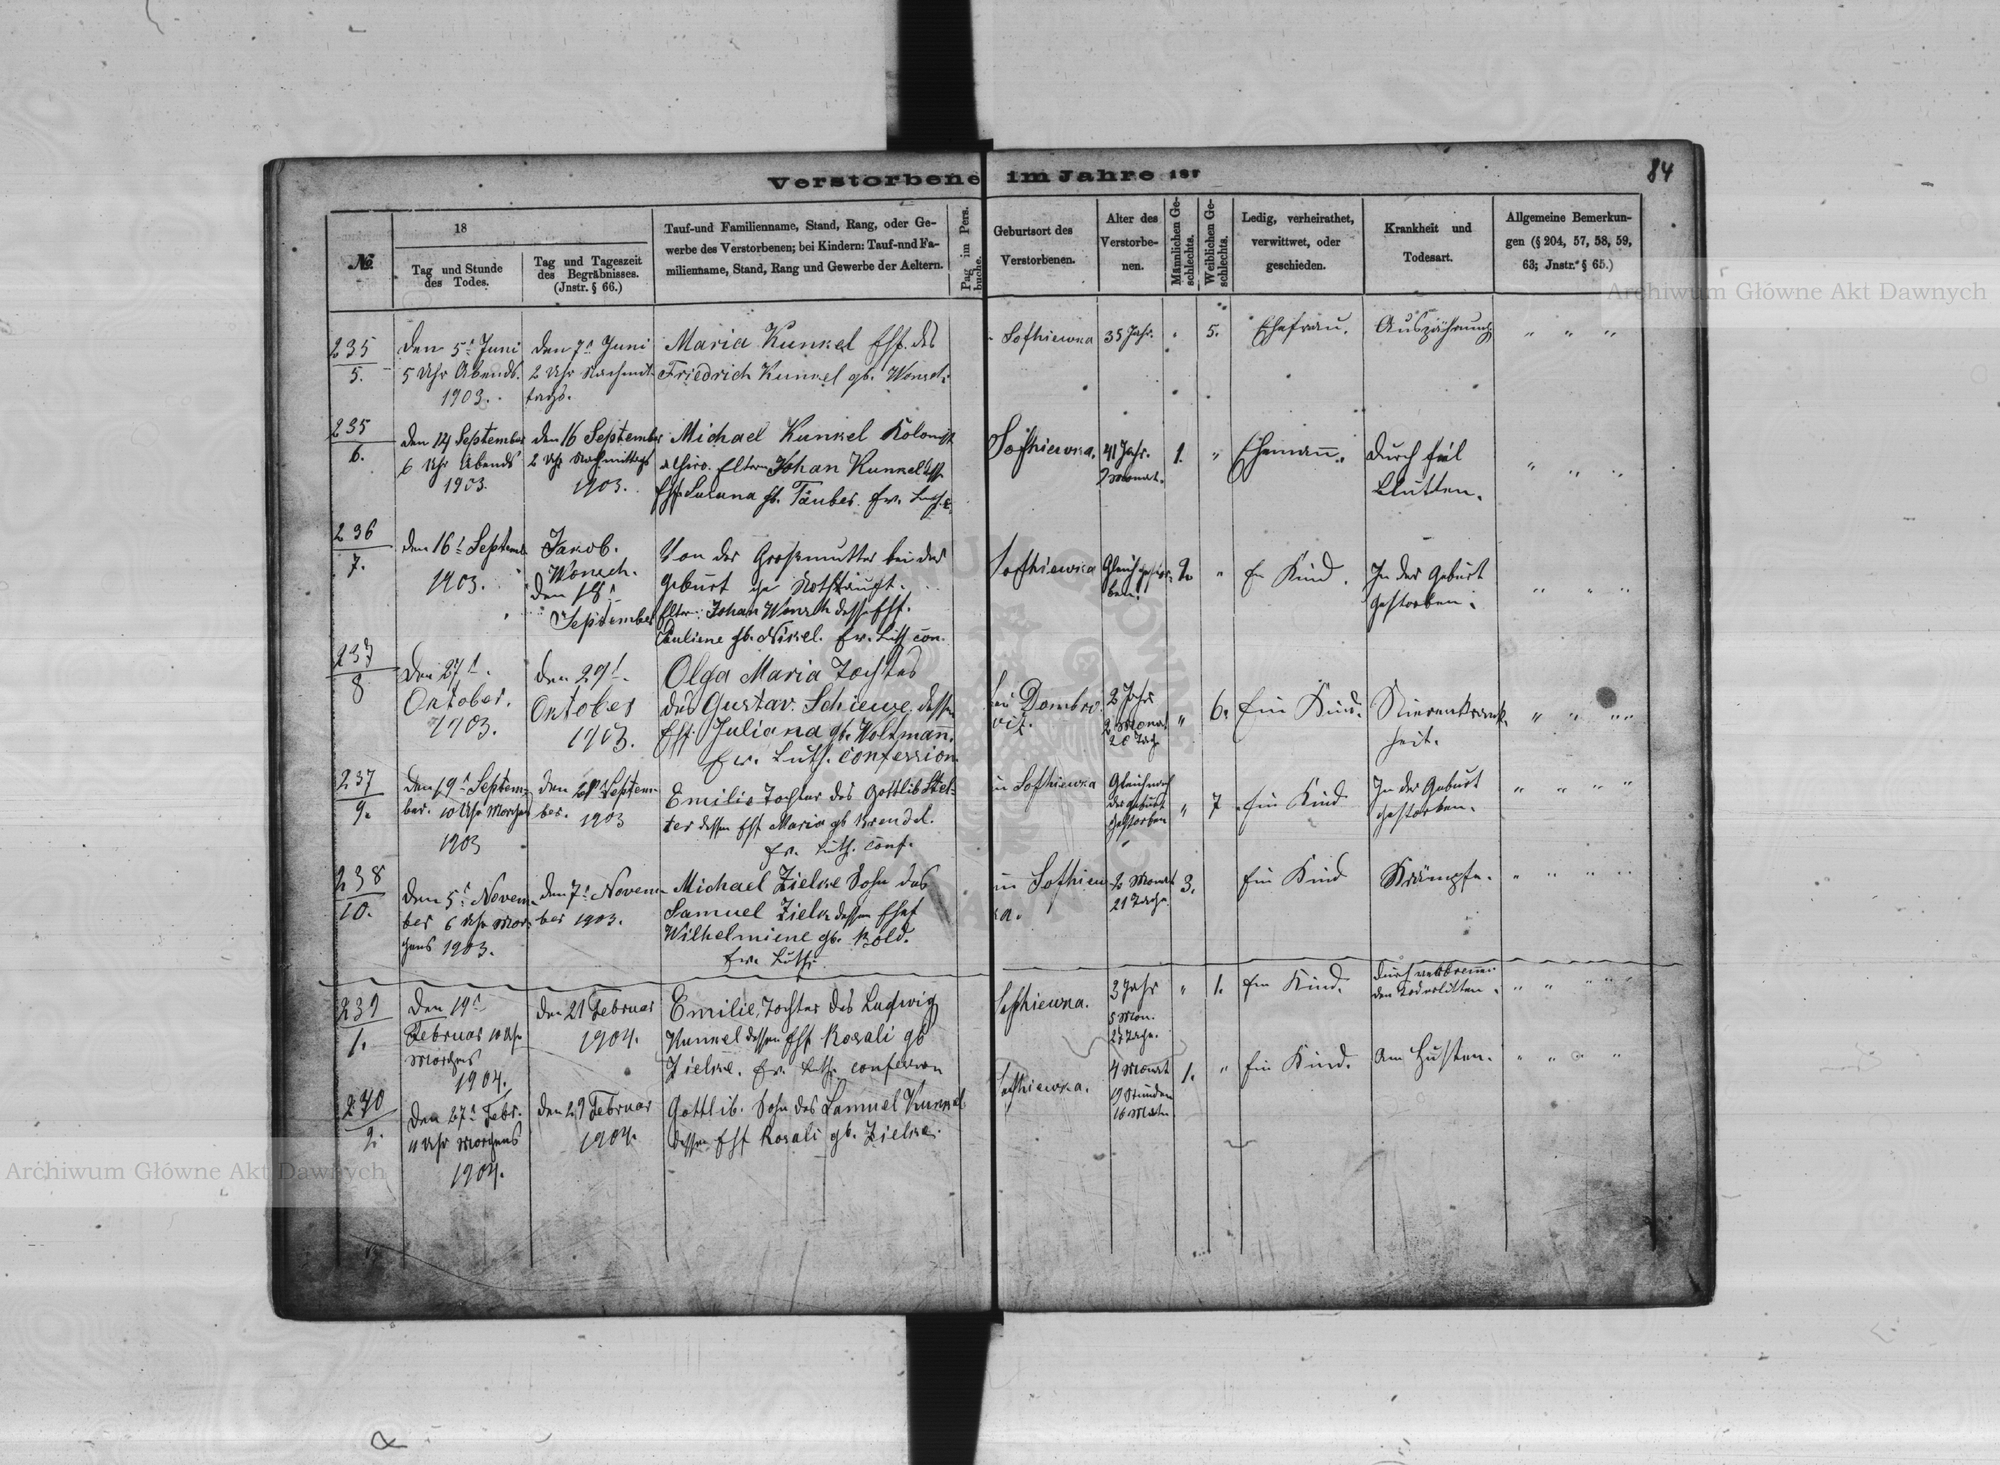 84
Verstorbene im Jahre 187
№
18
Tag und Stunde
des Todes.
Tag und Tageszeit
des Begräbnisses.
(Jnstr. § 66.)
Tauf-und Familienname, Stand, Rang, oder Ge-
werbe des Verstorbenen; bei Kindern: Tauf-und Fa-
milienname, Stand, Rang und Gewerbe der Aeltern.
Pag im Pers.
buche.
Geburtsort des
Verstorbenen.
Alter des
Verstorbe-
nen.
Männlichen Ge-
schlechts.
Weiblichen Ge-
schlechts.
Ledig, verheirathet,
verwittwet, oder
geschieden.
Krankheit und
Todesart.
Allgemeine Bemerkun-
gen (§ 204, 57, 58, 59,
63; Jnstr. § 65.)
235
5.
den 5t Juni
5 Uhr Abends.
1903.
den 7t Juni
2 Uhr Nachmit-
tags.
Maria Kunkel Ehf. des
Friedrich Kunkel gb. Wonsch.
Sofhiewka
35 Jahr.
5.
Ehefrau.
Auszährung
235
6.
den 14 September
6 Uhr Abends
1903.
den 16 September
2 Uhr Nachmittags
1903.
Michael Kunkel Kolonist
alhiro. Eltern Johan Kunkel dess.
Ehf Susana gb. Täuber. Ev. Luth.
Sofhiewka.
41 Jahr.
Monat.
1.
Ehemann.
durch
Blutten.
236
7.
den 16t Septemb.
1903.
Jakob.
Wonsch.
den 18t
September
Von der Grosmutter bei der
Geburt ge Nothtäugt.
Eltr. Johan Wonsch dess Ehf.
Pauliene gb. Nikel. Ev. Luth con.
Sofhiewka
2
Ein Kind.
In der Geburt
gestorben.
237
8
Den 27t.
Oktober.
1903.
den 29t.
Oktober
1903.
Olga Maria Tochter
des Gustav Schiewe dessen
Ehf. Juliana gb. Woltman.
Ev. Luth. Confession
bei Dombro
vitz.
2 Jahr
2 Monat
6.
Ein Kind.
Nierenkrank-
heit.
237
9.
den 19t Septem-
ber. 10 Uhr Morgen
1903
den 21t Septem-
ber. 1903
Emilie Tochter des Gottlib Stel-
ter dessen Ehf Maria gb Krendel.
Ev. Luth. Conf.
in Sofhiewka
Gleich nach
der Geburt
gestorben
7
Ein Kind
In der Geburt
gestorben.
238
10.
den 5t Novem-
ber 6 Uhr Mor-
gens 1903.
den 7t Novem-
ber 1903.
Michael Zielke Sohn des
Samuel Zielke dessen Ehef
Wilhelmiene gb. Böld.
Ev. Luth.
in Sofhiew
ka.
2 Monat
21 Tage.
3.
Ein Kind
Krämpfe.
239
1.
Den 19t
Februar 10 Uhr
Morgens
1904.
den 21 Februar
1904.
Emilie, Tochter des Ludwig
Kunkel dessen Ehf Rosali gb
Zielke. Ev. Luth. Confession
Sofhiewka.
3 Jahr
5 Mon.
27 Tage.
1.
Ein Kind.
durch verbrenn-
den Tod erlitten.
240
2.
den 27t Febr.
11 Uhr Morgens
1904.
den 29 Februar
1904.
Gottlib. Sohn des Samuel Kunkel
dessen Ehf Rosali gb. Zielke.
Sofhiewka.
4 Monat
19 Stunden
1.
Ein Kind.
Am Husten.
Archiwum Główne Akt Dawnych
Archiwum Główne Akt Dawnych